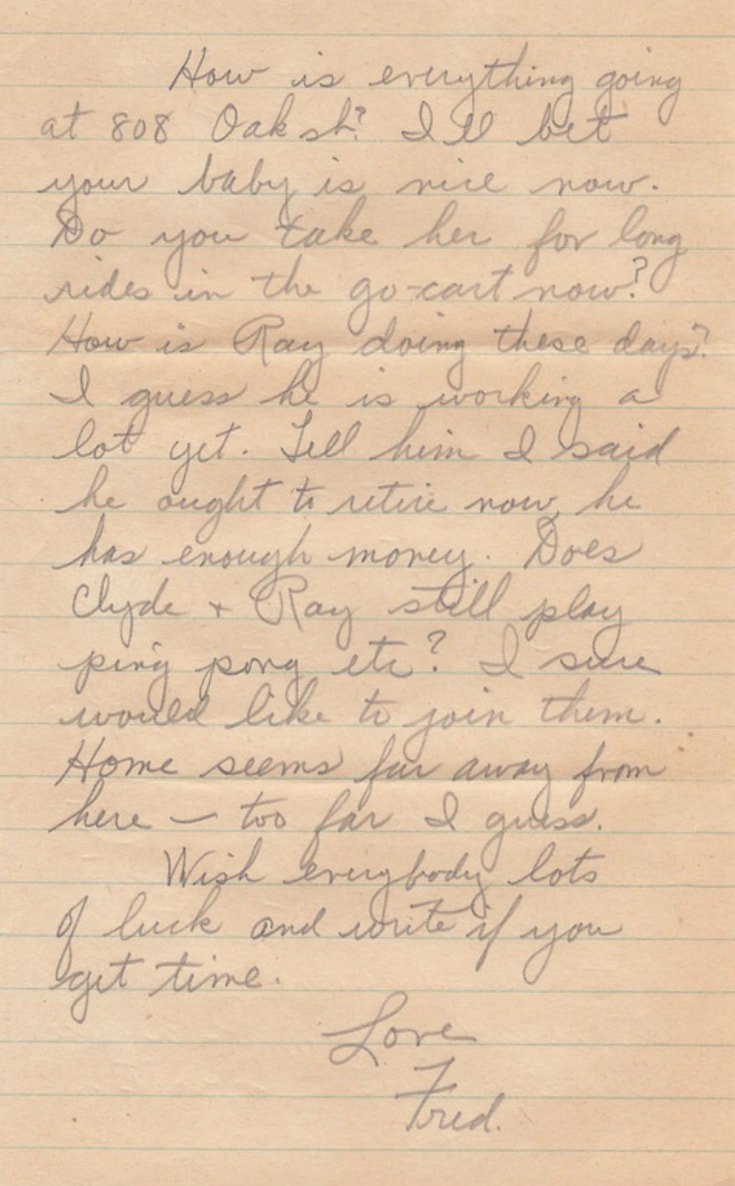 How is everything going
at 808 Oak st? I'll bet
your baby is nice now.
Do you take her for long
rides in the go-cart now?
How is Ray doing these days?
I guess he is working a
lot yet. Tell him I said
he ought to retire now, he
has enough money. Does
Clyde + Ray still play
ping pong etc? I sure
would like to join them.
Home seems far away from
here — too far I guess.
Wish everybody lots
of luck and write if you
get time.
Love
Fred.